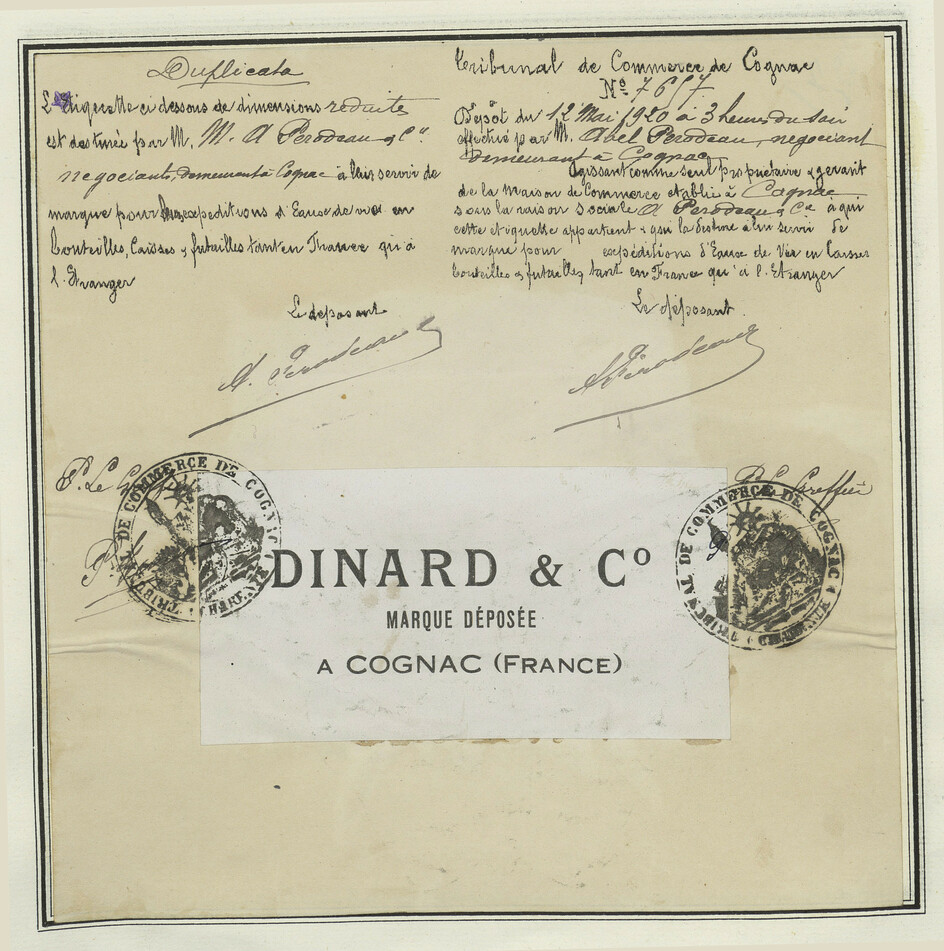 Duplicata
L'Etiquette ci dessous de dimensions reduites
est destinée par M. M. A Perodeau & Cie
negociants, demeurant à Cognac à leur servir de
marque pour expeditions d'Eaux de vie en
bouteilles, Caisses & futailles tant en France qu'à
l'Etranger
Le deposant
A. Perodeau
P. Le
Tribunal de Commerce de Cognac
No 7657
Dépôt du 12 Mai 1920 à 3 heures du soir
effectué par M. Abel Perodeau, negociant
demeurant à Cognac
Agissant comme seul Propriétaire & gerant
de la maison de Commerce etablie à Cognac
sous la raison sociale A Perodeau & Cie à qui
cette etiquette appartient & qui la destine à lui servir de
marque pour expéditions d'Eaux de Vie en Caisses
bouteilles & futailles, tant en France qu'à l'Etranger
Le déposant
A Perodeau
P. Le Greffier
TRIBUNAL DE COMMERCE DE COGNAC
TRIBUNAL DE COMMERCE DE COGNAC
DINARD & Co
MARQUE DÉPOSÉE
A COGNAC (FRANCE)